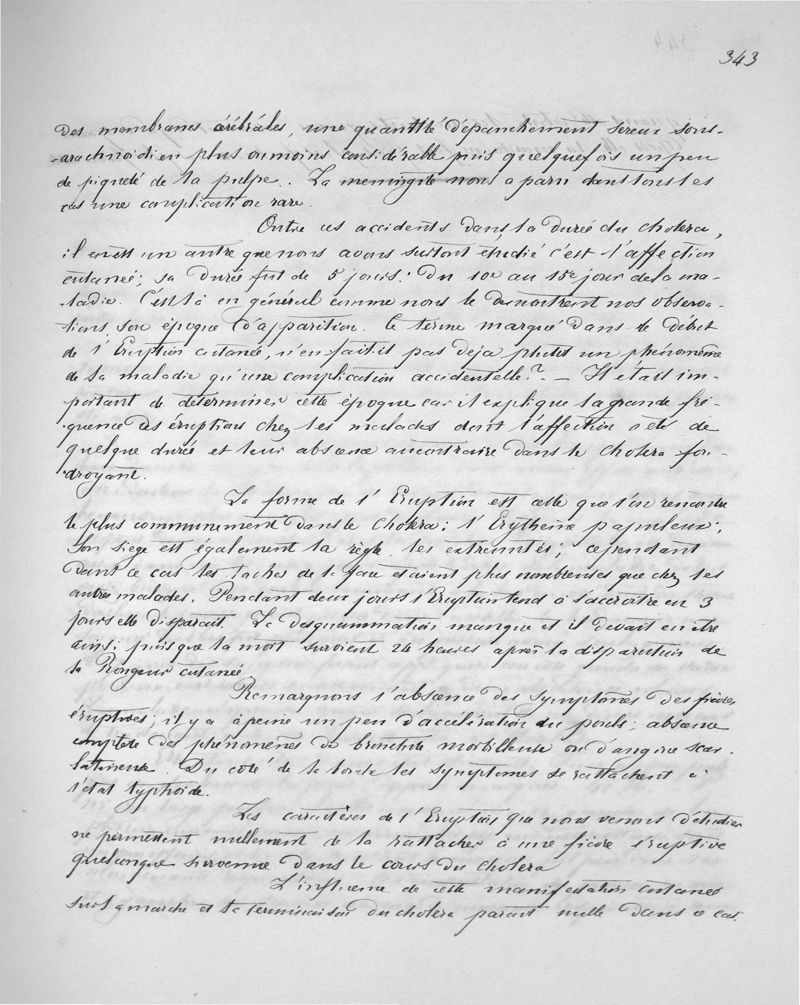 343
des membranes cérébrales, une quantité d'épanchement sereux sous-
-arachnoïdien plus ou moins considérable puis quelquefois un peu
de piqueté de la pulpe.. La meningite nous a paru dans tous les
cas une complication rare.
Outre ces accidents dans la durée du cholera,
il en est un autre que nous avons surtout étudié c'est l'affection
cutanée; sa durée fut de 5 jours. Du 10e au 15e jour de la ma-
ladie. C'est là en général comme nous le demontrent nos observa-
tions, son époque d'apparition. Ce terme marqué dans le début
de l'Eruption cutanée, n'en fait-il pas deja plutôt un phénomène
de la maladie qu'une complication accidentelle? - Il était im-
portant de determiner cette époque car il explique la grande fré-
quence des éruptions chez les malades dont l'affection a été de
quelque durée et leur absence au contraire dans le cholera fou-
droyant.
La forme de l'Eruption est celle que l'on rencontre
le plus communement dans le Cholera; l'Erytheme papuleux;
Son siège est également la règle les extremités; cependant
dans ce cas les taches de la face etaient plus nombreuses que chez les
autres malades. Pendant deux jours l'Eruption tend à s'accroitre en 3
jours elle disparait. La desquammation manque et il devait en etre
ainsi puisque la mort survient 24 heures après la disparition de
la Rougeur cutanée
Remarquons l'absence des symptômes des fievres
éruptives; il y a à peine un peu d'accélération du pouls; absence
complete des phénomènes de bronchite morbilleuse ou d'angine scar-
latineuse. Du coté de la bouche les symptomes se rattachent à
l'état typhoïde.
Les caractères de l'Eruption que nous venons d'étudier
ne permettent nullement de la rattacher à une fievre éruptive
quelconque survenue dans le cours du cholera
L'influence de cette manifestation cutanée
sur la marche et la terminaison du cholera parait nulle dans ce cas.